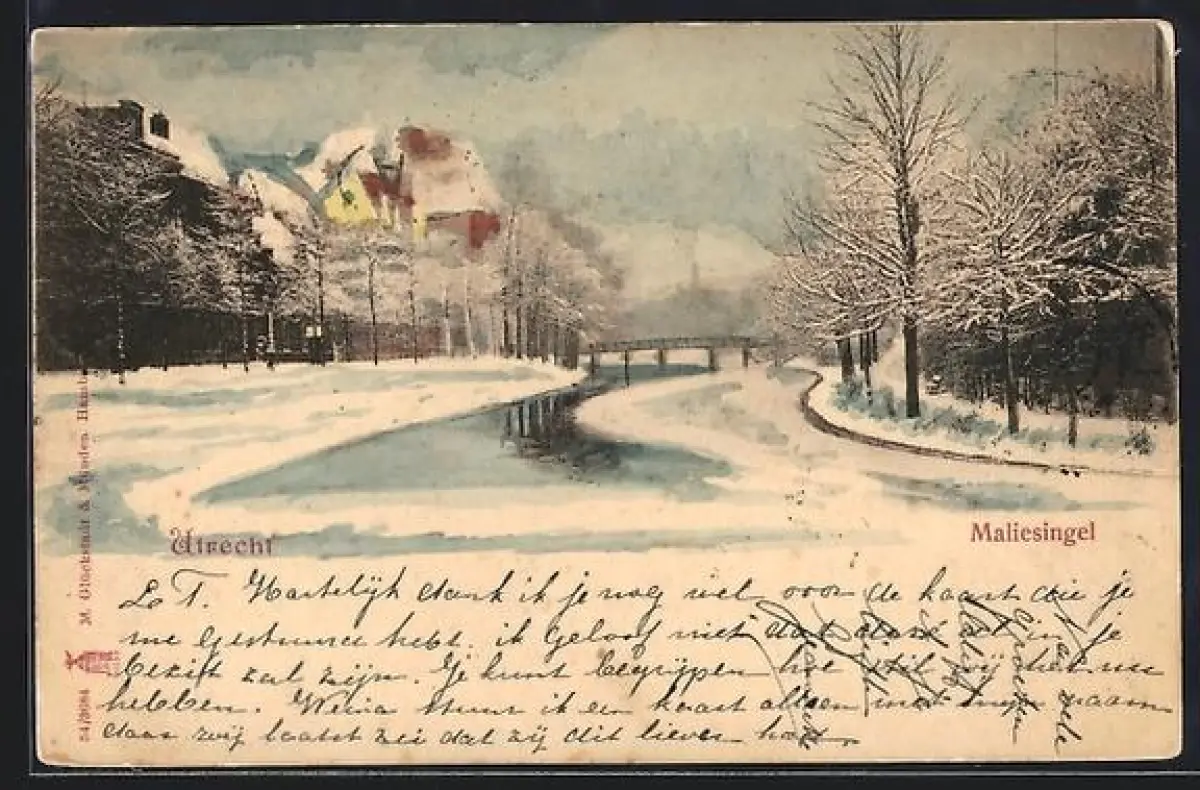 Utrecht
Maliesingel
M. Glückstadt & Münden, Hamb
34/3084
L T. Hartelijk dank ik je nog wel voor de kaart die je
me gestuurd hebt. ik geloof niet dat deze al in je
bezit zal zijn. Je kunt begrijpen hoe stil wij het nu
hebben. Wiena stuur ik een kaart alleen met mijn naam
daar zij laatst zei dat zij dit liever had.